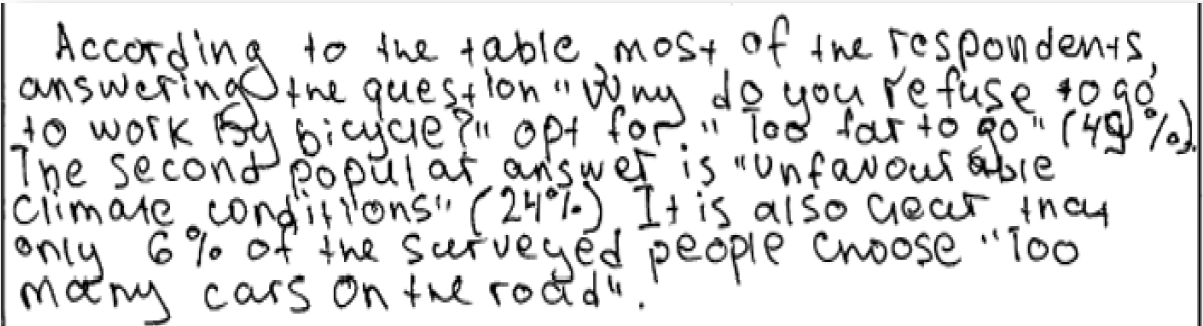 According to the table, most of the respondents,
answering the question "Why do you refuse to go
to work by bicycle?" opt for "Too far to go" (49%).
The second popular answer is "Unfavourable
climate conditions" (24%). It is also clear that
only 6% of the surveyed people choose "Too
many cars on the road".